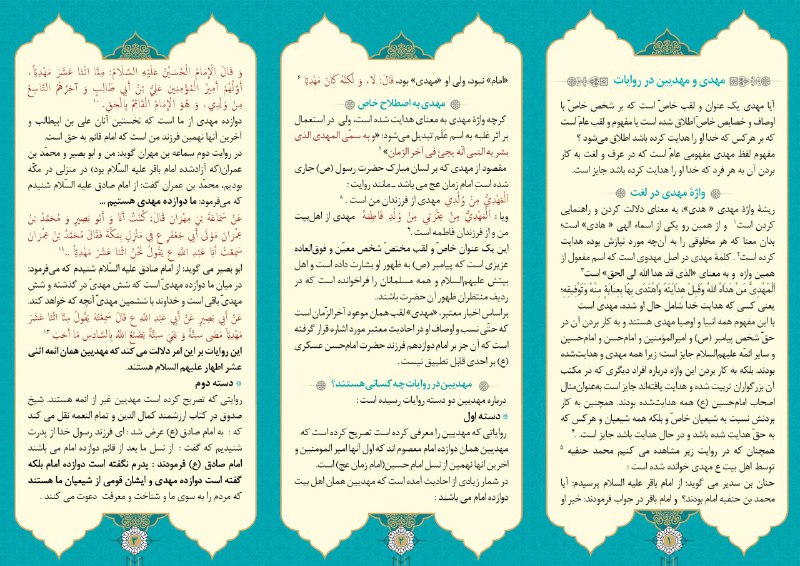 مهدی و مهدیین در روایات
آیا مهدی یک عنوان و لقب خاص است که بر شخص خاص با
اوصاف و خصایص خاص اطلاق شده است یا مفهوم و لقب عام است
که بر هرکس که خدا او را هدایت کرده باشد اطلاق می‌شود ؟
مفهوم لفظ مهدی مفهومی عام است که در عرف و لغت به کار
بردن آن به هر فرد که خدا او را هدایت کرده باشد جایز است.
واژهٔ مهدی در لغت
ریشهٔ واژهٔ مهدی « هدی»، به معنای دلالت کردن و راهنمایی
کردن است۱ و از همین رو یکی از اسماء الهی « هادی» است؛
بدان معنا که هر مخلوقی را به آن‌چه مورد نیازش بوده هدایت
کرده است۲. کلمهٔ مهدی در اصل مهدوی است که اسم مفعول از
همین واژه و به معنای «الذی قد هداه الله الی الحق» است۳
اَلْمَهْدِیُّ مَنْ هَداهُ اللهُ وَقَبِلَ هِدایَتَهُ وَاهْتَدَی بِها بِعِنایَةٍ مِنْهُ وَتَوْفِیقِهِ؛
یعنی کسی که هدایت خدا شامل حال او شده، مهدی است
با این مفهوم همه انبیا و اوصیا مهدی هستند و به کار بردن آن در
حق شخص پیامبر (ص) و امیرالمؤمنین و امام‌حسن و امام‌حسین
و سایر ائمّه علیهم‌السلام جایز است؛ زیرا همه مهدی و هدایت‌شده
بودند. بلکه به کار بردن این واژه درباره افراد دیگری که در مکتب
آن بزرگواران تربیت شده و هدایت یافته‌اند جایز است به‌عنوان‌مثال
اصحاب امام‌حسین (ع) همه هدایت‌شده بودند. همچنین به کار
بردنش نسبت به شیعیان خاص و بلکه همه شیعیان و هرکس که
به حق هدایت شده باشد و در حال هدایت باشد جایز است .۴
همچنان که در روایت زیر مشاهده می کنیم محمد حنفیه ۵
توسط اهل بیت ع مهدی خوانده شده است :
حنان بن سدیر می گوید: از امام باقر علیه السلام پرسیدم: آیا
محمد بن حنفیه امام بودند؟ و امام باقر در جواب فرمودند: خیر او
۱
«امام» نبود، ولی او «مهدی» بود، قَالَ: لَا، وَ لَکِنَّهُ کَانَ مَهْدِیّاً ۶
مهدی به اصطلاح خاص
گرچه واژهٔ مهدی به معنای هدایت شده است، ولی در استعمال
بر اثر غلبه به اسم عَلَم تبدیل می‌شود: «و به سمّی المهدی الذی
بشر به النبی أنّه یجیٔ فی آخر الزمان» ۷
مقصود از مهدی که بر لسان مبارک حضرت رسول (ص) جاری
شده است امام زمان عج می باشد ..مانند روایت :
اَلْمَهْدِیُّ مِنْ وُلْدِی مهدی از فرزندان من است . ۸
ویا : اَلْمَهْدِیُّ مِنْ عِتْرَتِی مِنْ وُلْدِ فَاطِمَةَ مهدی از اهل‌بیت
من و از فرزندان فاطمه است.۹
این یک عنوان خاص و لقب مختص شخص معیّن و فوق‌العاده
عزیزی است که پیامبر (ص) به ظهور او بشارت داده است و اهل
بیتش علیهم‌السلام و همه مسلمانان را فراخوانده است که در
ردیف منتظران ظهور آن حضرت باشند.
براساس اخبار معتبر، «مهدی» لقب همان موعود آخرالزّمان است
که حتّی نسب و اوصاف او در احادیث معتبر مورد اشاره قرار گرفته
است که آن جز بر امام دوازدهم فرزند حضرت امام‌حسن عسکری
(ع) بر احدی قابل تطبیق نیست.
مهدیین در روایات چه کسانی هستند؟
درباره مهدیین دو دسته روایات رسیده است :
دسته اول
روایاتی که مهدیین را معرفی کرده است تصریح کرده است که
مهدیین همان دوازده امام معصوم اند که اول آنها امیر المومنین و
آخرین آنها نهمین از نسل امام حسین(امام زمان عج) است.
در شمار زیادی از احادیث آمده است که مهدیین همان اهل بیت
دوازده امام می باشند :
۲
وَ قَالَ الْإِمَامُ الْحُسَیْنُ عَلَیْهِ السَّلَامُ: مِنَّا اثْنَا عَشَرَ مَهْدِیّاً،
أَوَّلُهُمْ أَمِیرُ الْمُؤْمِنِینَ عَلِیُّ بْنُ أَبِی طَالِبٍ وَ آخِرُهُمُ التَّاسِعُ
مِنْ وُلْدِی، وَ هُوَ الْإِمَامُ الْقَائِمُ بِالْحَقِّ. ۱۰
دوازده مهدی از ما است که نخستین آنان علی بن ابیطالب و
آخرین آنها نهمین فرزند من است که امام قائم به حق است.
در روایت دوم سماعه بن مهران گوید: من و ابو بصیر و محمّد بن
عمران(که آزادشده امام باقر علیه السّلام بود) در منزلی در مکّه
بودیم، محمّد بن عمران گفت: از امام صادق علیه السّلام شنیدم
که می‌فرمود: ما دوازده مهدی هستیم ...
عَنْ سَمَاعَةَ بْنِ مِهْرَانَ قَالَ: کُنْتُ أَنَا وَ أَبُو بَصِیرٍ وَ مُحَمَّدُ بْنُ
عِمْرَانَ مَوْلَی أَبِی جَعْفَرٍ ع فِی مَنْزِلٍ بِمَکَّةَ فَقَالَ مُحَمَّدُ بْنُ عِمْرَانَ
سَمِعْتُ أَبَا عَبْدِ اللَّهِ ع یَقُولُ نَحْنُ اثْنَا عَشَرَ مَهْدِیّاً ..۱۱
ابو بصیر می گوید: از امام صادق علیه السّلام شنیدم که می‌فرمود:
در میان ما دوازده مهدی است که شش مهدی در گذشته و شش
مهدی باقی است و خداوند با ششمین مهدی آنچه که خواهد کند.
عَنْ أَبِی بَصِیرٍ عَنْ أَبِی عَبْدِ اللَّهِ ع قَالَ سَمِعْتُهُ یَقُولُ مِنَّا اثْنَا عَشَرَ
مَهْدِیّاً مَضَی سِتَّةٌ وَ بَقِیَ سِتَّةٌ یَصْنَعُ اللَّهُ بِالسَّادِسِ مَا أَحَبَّ ۱۲
این روایات بر این امر دلالت می کند که مهدیین همان ائمه اثنی
عشر اطهار علیهم السلام هستند.
دسته دوم
روایتی که تصریح کرده است مهدیین غیر از ائمه هستند. شیخ
صدوق در کتاب ارزشمند کمال الدین و تمام النعمه نقل می کند
که : به امام صادق (ع) عرض شد : ای فرزند رسول خدا از پدرت
شنیدیم که گفت : از نسل ما بعد از قائم دوازده امام می باشند
امام صادق (ع) فرمودند : پدرم نگفته است دوازده امام بلکه
گفته است دوازده مهدی و ایشان قومی از شیعیان ما هستند
که مردم را به سوی ما و شناخت و معرفت دعوت می کنند .
۳